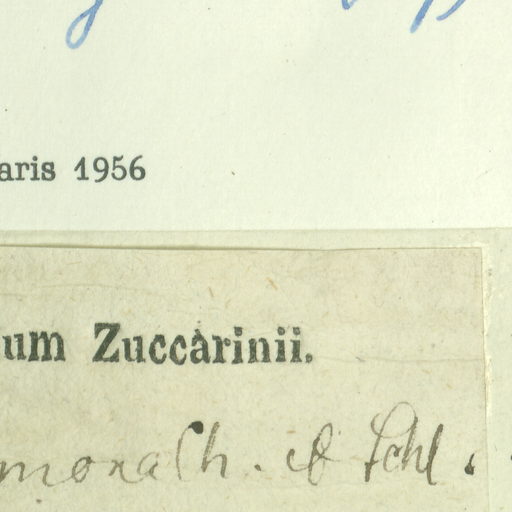 aris 1956
um Zuccarinii.
mona Ch. & Schl.